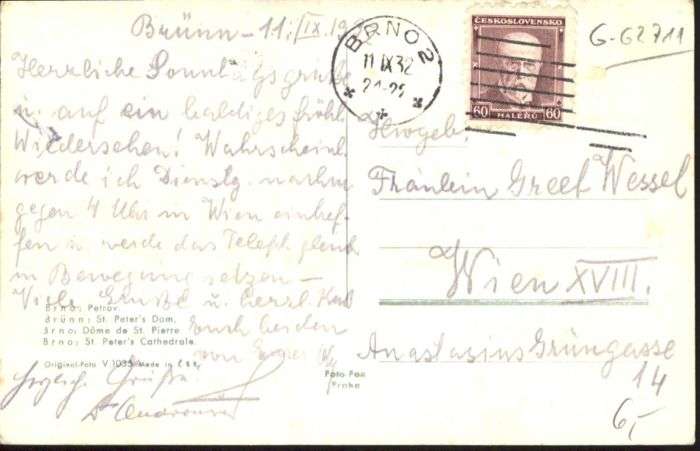 Brünn - 11. IX. 19
BRNO 2
11 IX 32
21-25
ČESKOSLOVENSKO
60 HALÉŘŮ 60
G-62711
Herrliche Sonntagsgrüße
u. auf ein baldiges fröhl.
Wiedersehen! Wahrscheinl.
werde ich Dienstg. nachm.
gegen 4 Uhr in Wien eintref-
fen u. werde das Teleph. gleich
in Bewegung setzen -
Viele Grüße u. herzl.
Euch beiden
von
Herzliche Grüße
Hwgeb.
Fräulein Greet Wessel
Wien XVIII.
Anastasius Grüngasse
14
6,-
Brno: Petrov.
Brünn: St. Peter's Dom.
Brno: Dôme de St. Pierre
Brno: St. Peter's Cathedrale.
Original-Foto V 1035 Made in Č.S.R.
Foto-Fon
Praha